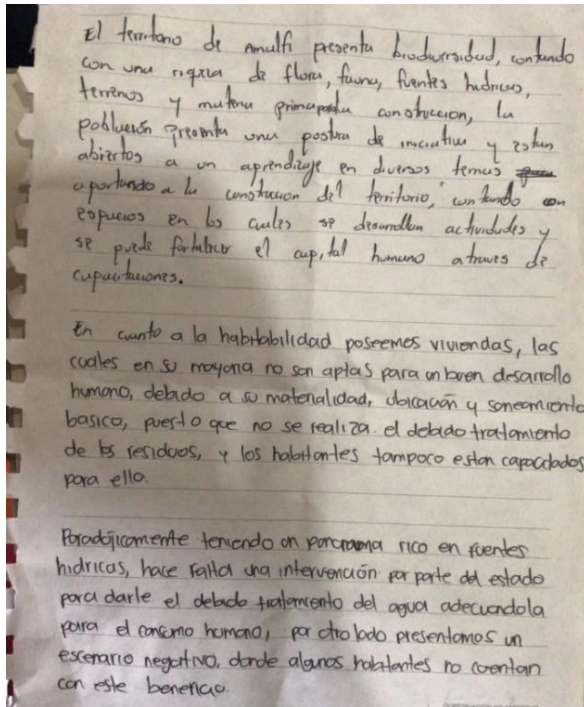 El territorio de Amalfi presenta biodiversidad, contando
con una riqueza de flora, fauna, fuentes hidricas,
terrenos y materia prima para la construccion, la
población presenta una postura de iniciativa y estan
abiertos a un aprendizaje en diversos temas
aportando a la construccion del territorio, contando con
espacios en los cuales se desarrollan actividades y
se puede fortalecer el capital humano atraves de
capacitaciones.
En cuanto a la habitabilidad poseemos viviendas, las
cuales en su mayoria no son aptas para un buen desarollo
humano, debido a su materialidad, ubicación y saneamiento
basico, puesto que no se realiza el debido tratamiento
de los residuos, y los habitantes tampoco estan capacitados
para ello.
Paradójicamente teniendo un panorama rico en fuentes
hidricas, hace falta una intervención por parte del estado
para darle el debido tratamiento del agua adecuandola
para el consumo humano, por otro lado presentamos un
escenario negativo, donde algunos habitantes no cuentan
con este beneficio.